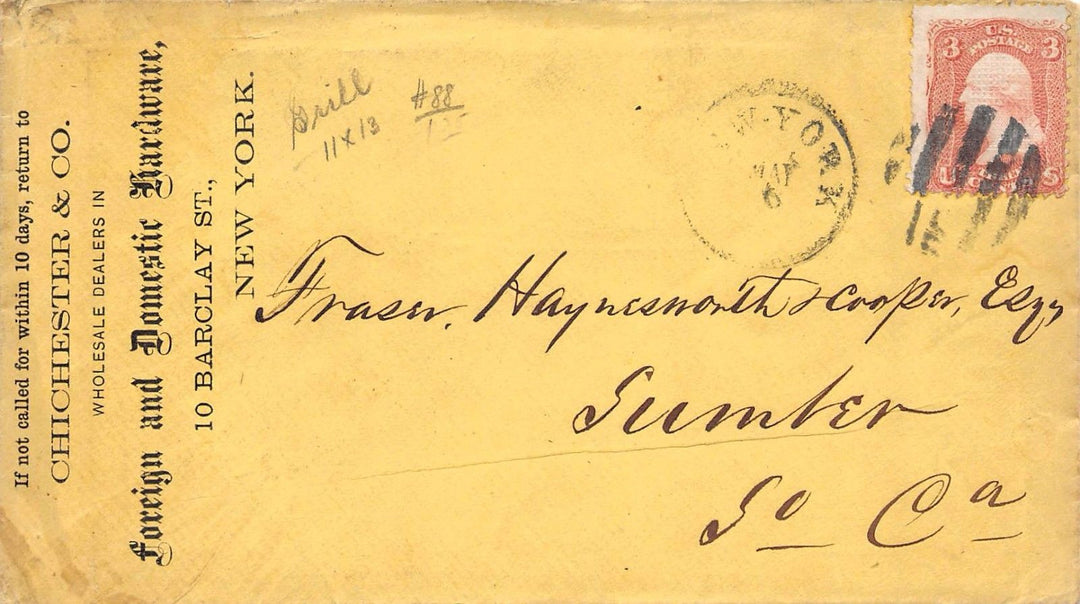 If not called for within 10 days, return to
CHICHESTER & CO.
WHOLESALE DEALERS IN
Foreign and Domestic Hardware,
10 BARCLAY ST.,
NEW YORK.
Grill
11x13
#88
W-YORK
6
3 U.S. 3
POSTAGE
U
S
Fraser, Haynesworth & Cooper, Esqs
Sumter
So Ca